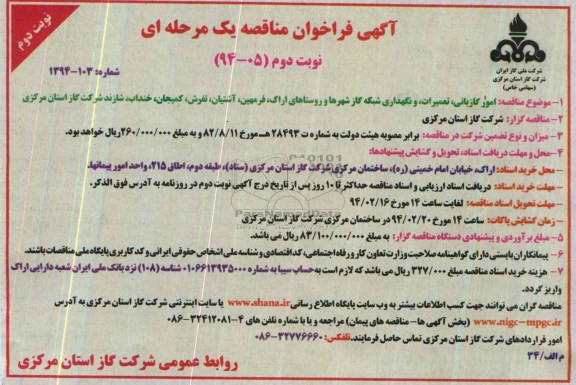 نوبت دوم
شرکت ملی گاز ایران
شرکت گاز استان مرکزی
(سهامی خاص)
آگهی فراخوان مناقصه یک مرحله ای
نوبت دوم (۰۵-۹۴)
شماره: ۱۰۳-۱۳۹۴
۱- موضوع مناقصه: امور گازبانی، تعمیرات، و نگهداری شبکه گاز شهرها و روستاهای اراک، فرمهین، آشتیان، تفرش، کمیجان، خنداب، شازند شرکت گاز استان مرکزی
۲- مناقصه گزار: شرکت گاز استان مرکزی
۳- میزان و نوع تضمین شرکت در مناقصه: برابر مصوبه هیئت دولت به شماره ت ۲۸۴۹۳ هـ مورخ ۸۲/۸/۱۱ و به مبلغ ۲۶۰/۰۰۰/۰۰۰ ریال خواهد بود.
۴- محل و مهلت دریافت اسناد، تحویل و گشایش پیشنهادها:
- محل خرید اسناد: اراک، خیابان امام خمینی (ره)، ساختمان مرکزی شرکت گاز استان مرکزی (ستاد)، طبقه دوم، اطاق ۲۱۵، واحد امور پیمانها.
- مهلت خرید اسناد: دریافت اسناد ارزیابی و اسناد مناقصه حداکثر تا ۱۰ روز پس از تاریخ درج آگهی نوبت دوم در روزنامه به آدرس فوق الذکر.
- مهلت تحویل اسناد مناقصه: لغایت ساعت ۱۴ مورخ ۹۴/۰۲/۱۶
- زمان گشایش پاکات: ساعت ۱۴ مورخ ۹۴/۰۲/۲۰ در ساختمان مرکزی شرکت گاز استان مرکزی
۵- مبلغ برآوردی و پیشنهادی دستگاه مناقصه گزار: به مبلغ ۸۳/۱۰۰/۰۰۰/۰۰۰ ریال می باشد.
۶- پیمانکاران بایستی دارای گواهینامه صلاحیت وزارت تعاون کار و رفاه اجتماعی، کد اقتصادی و شناسه ملی اشخاص حقوقی ایرانی و کد کاربری پایگاه ملی مناقصات باشند.
۷- هزینه خرید اسناد مناقصه مبلغ ۳۲۷/۰۰۰ ریال می باشد که لازم است به حساب سیبا به شماره ۰۱۰۶۶۱۳۹۳۵۰۰۰ شناسه (۱۰۸) نزد بانک ملی ایران شعبه دارایی اراک
واریز گردد.
مناقصه گران می توانند جهت کسب اطلاعات بیشتر به وب سایت پایگاه اطلاع رسانی www.shana.ir یا سایت اینترنتی شرکت گاز استان مرکزی به آدرس
www.nigc-mpgc.ir (بخش آگهی ها- مناقصه های پیمان) مراجعه و یا با شماره تلفن های ۴-۳۲۴۱۲۰۸۱-۰۸۶
امور قراردادهای شرکت گاز استان مرکزی تماس حاصل فرمایند. تلفکس: ۳۲۷۷۶۶۶۰-۰۸۶
م الف/۳۴
روابط عمومی شرکت گاز استان مرکزی